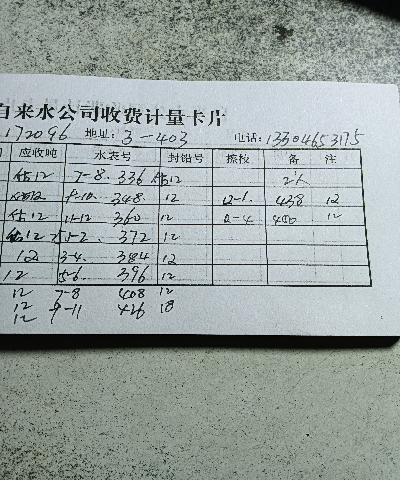 自来水公司收费计量卡片
172096 地址: 3-403 电话: 13304653175
应收吨 水表号 封铅号 撩校 备 注
估12 7-8. 336 估12 2人
9-10. 348 12 12-1. 438 12
估12 11-12 360 12 2-4 450 12
估12 1-2. 372 12
12 3-4. 384 12
12 5-6. 396 12
12 7-8 408 12
12 9-11 426 18
12